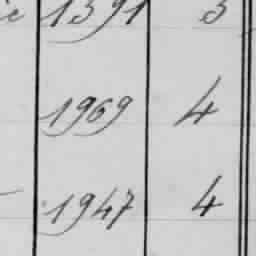 1391 3
1969 4
1947 4